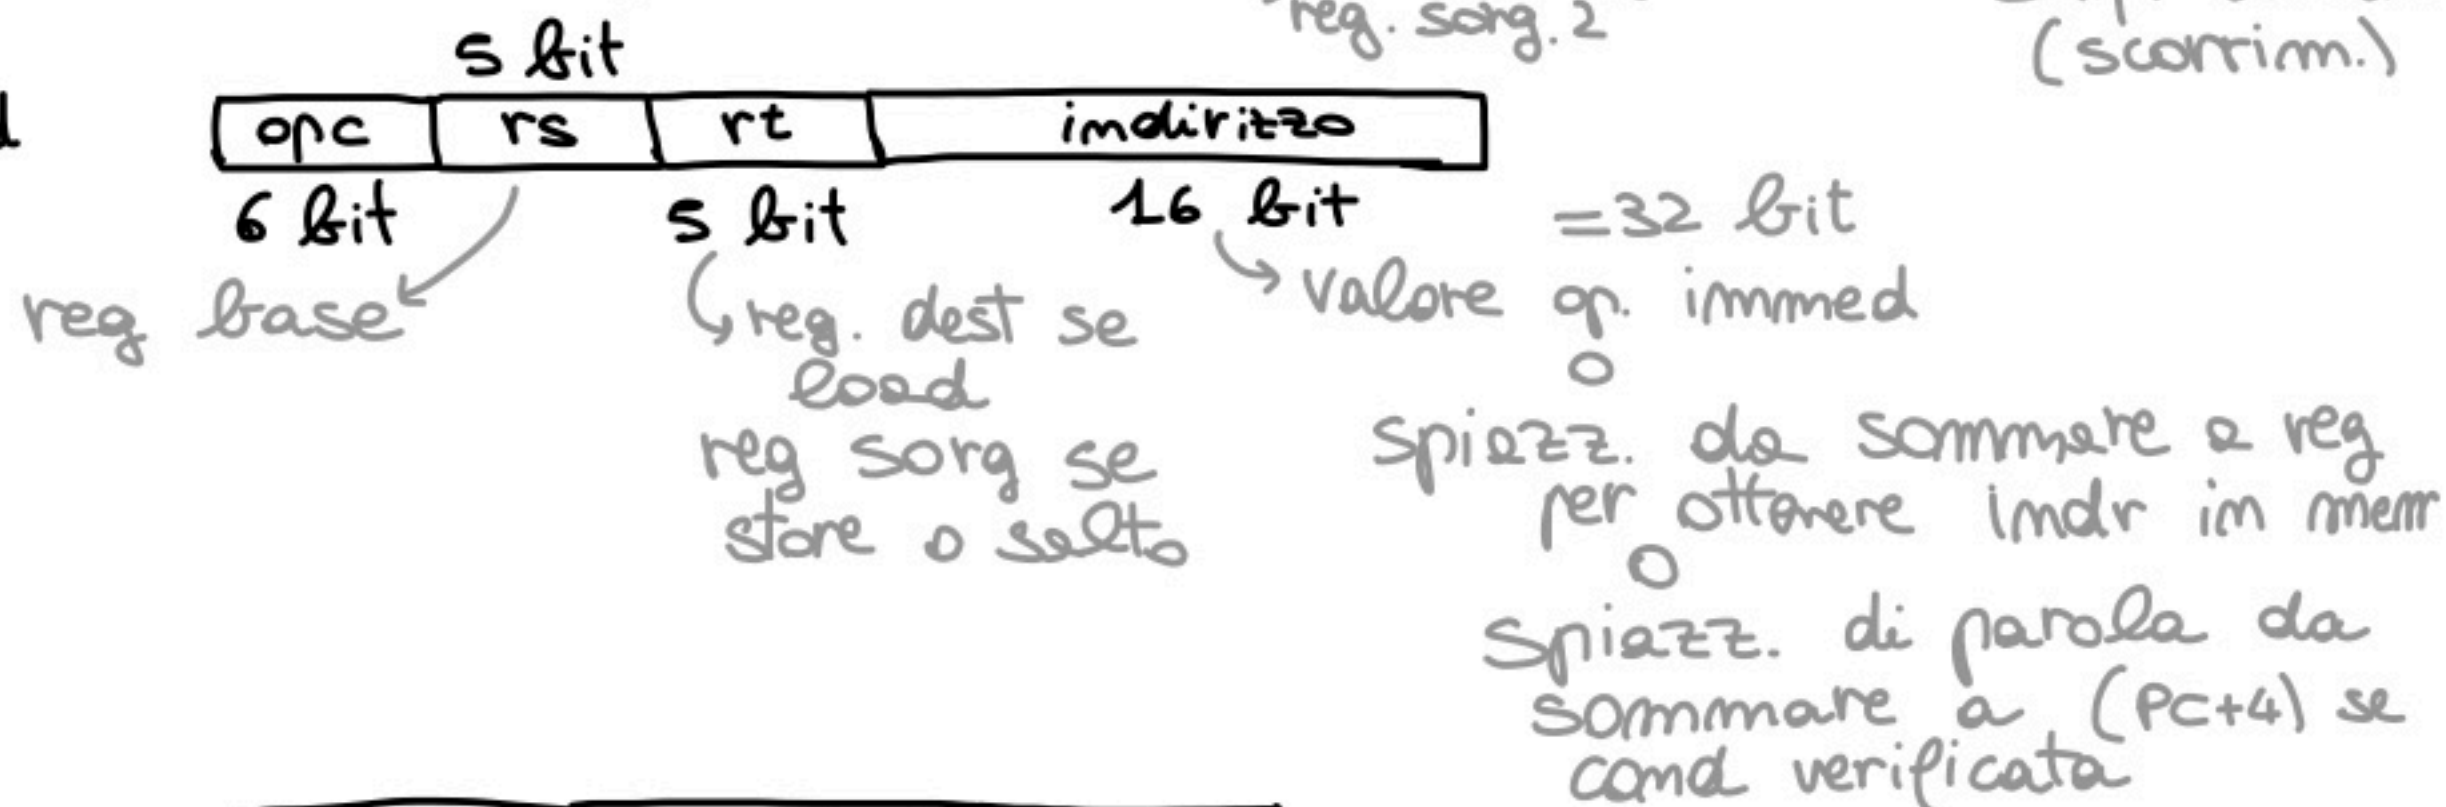 reg. sorg. 2
(scorrim.)
5 bit
opc rs rt indirizzo
6 bit 5 bit 16 bit =32 bit
reg base
reg. dest se
load
reg sorg se
store o salto
valore op. immed
o
spiazz. da sommare a reg
per ottenere indr in mem
o
spiazz. di parola da
sommare a (PC+4) se
cond verificata